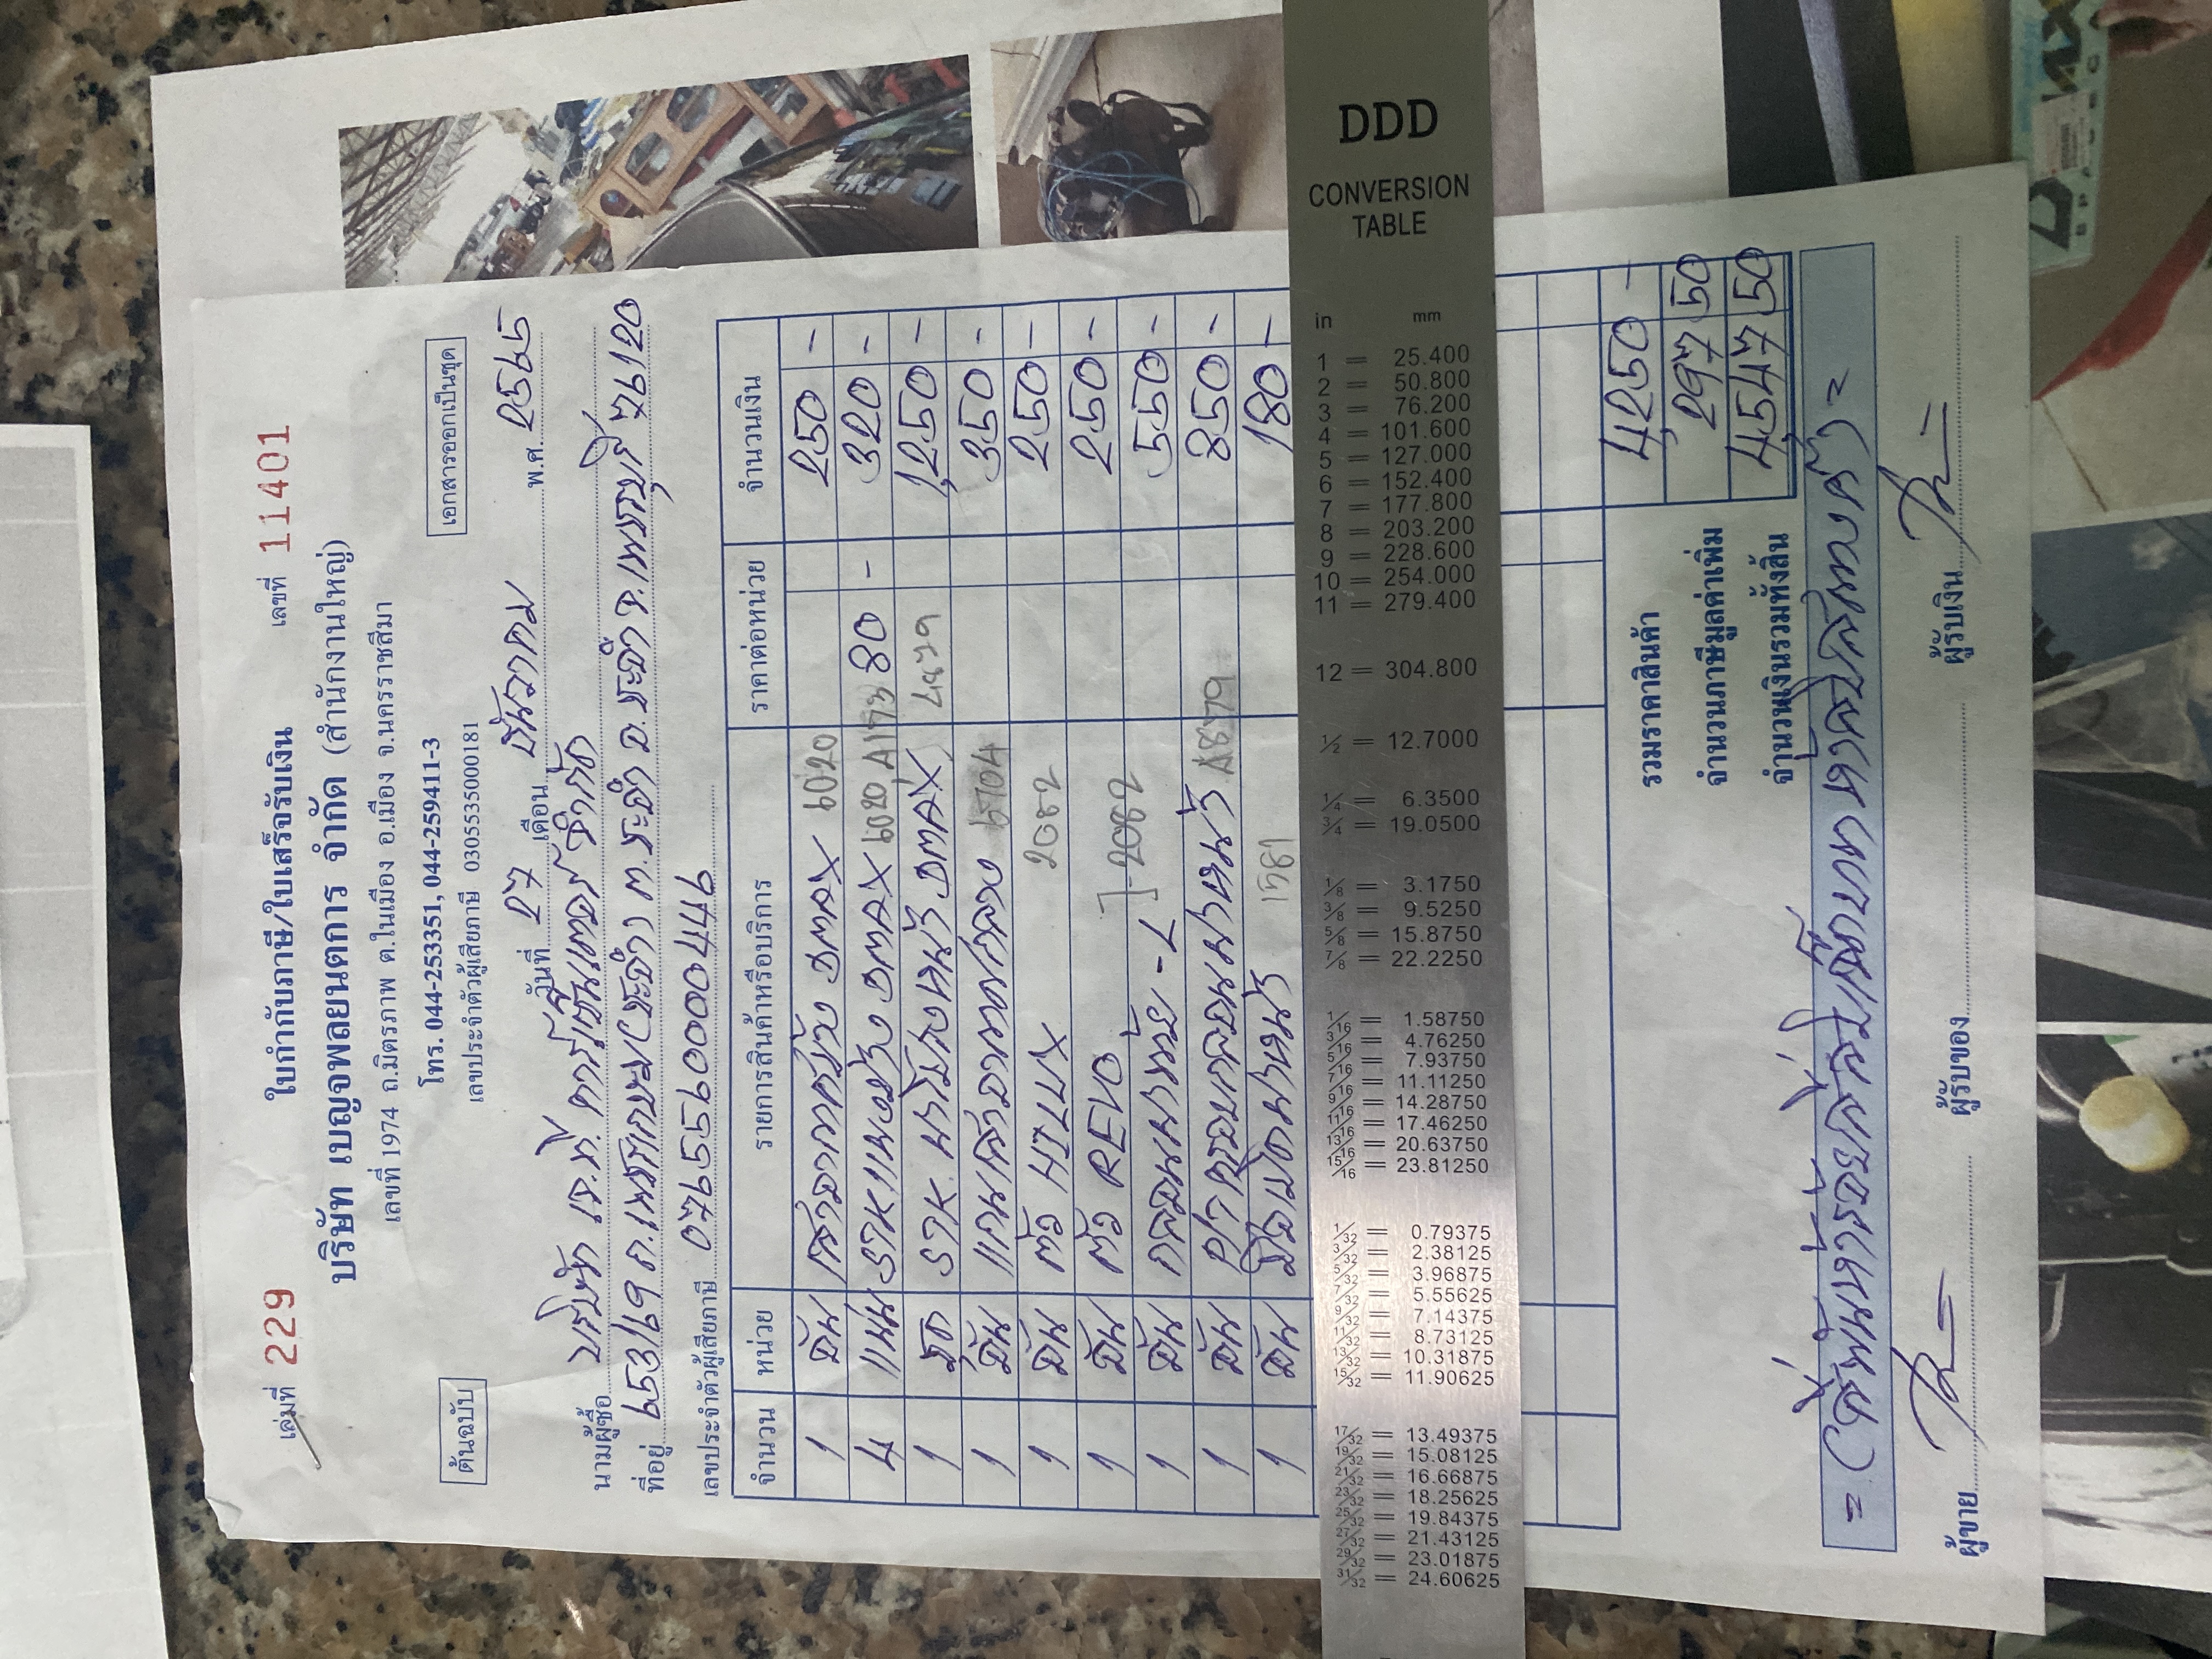 เล่มที่ 229 ใบกำกับภาษี/ใบเสร็จรับเงิน เลขที่ 11401
บริษัท เบญจพลยนตการ จำกัด (สำนักงานใหญ่)
เลขที่ 1974 ถ.มิตรภาพ ต.ในเมือง อ.เมือง จ.นครราชสีมา
โทร. 044-253351, 044-259411-3
เลขประจำตัวผู้เสียภาษี 0305535000181
ต้นฉบับ
เอกสารออกเป็นชุด
วันที่ 27 เดือน ธันวาคม พ.ศ. 2565
นามผู้ซื้อ บริษัท เจ.ที. คาร์เซ็นเตอร์ จำกัด
ที่อยู่ 653/69 ถ.เพชรเกษม ต.ชะอำ อ.ชะอำ จ.เพชรบุรี 76120
เลขประจำตัวผู้เสียภาษี 0765560000446
จำนวน หน่วย รายการสินค้าหรือบริการ ราคาต่อหน่วย จำนวนเงิน
1 อัน เสาอากาศ DMAX 6020 250 -
4 แผ่น DMAX 6020 A1773 80 - 320 -
1 ชุด DMAX 4879 1,250 -
1 อัน 350 -
1 อัน ตัว HILUX 2082 250 -
1 อัน ตัว REVO 250 -
1 อัน ]-2082 550 -
1 อัน A8879 850 -
1 อัน 1581 180 -
รวมราคาสินค้า 4,250 -
จำนวนภาษีมูลค่าเพิ่ม 297 50
จำนวนเงินรวมทั้งสิ้น 4,547 50
= (สี่พันห้าร้อยสี่สิบเจ็ดบาทห้าสิบสตางค์) =
ผู้ขาย ผู้รับของ ผู้รับเงิน
DDD
CONVERSION
TABLE
in mm
1 = 25.400
2 = 50.800
3 = 76.200
4 = 101.600
5 = 127.000
6 = 152.400
7 = 177.800
8 = 203.200
9 = 228.600
10 = 254.000
11 = 279.400
12 = 304.800
1/2 = 12.7000
1/4 = 6.3500
3/4 = 19.0500
1/8 = 3.1750
3/8 = 9.5250
5/8 = 15.8750
7/8 = 22.2250
1/16 = 1.58750
3/16 = 4.76250
5/16 = 7.93750
7/16 = 11.11250
9/16 = 14.28750
11/16 = 17.46250
13/16 = 20.63750
15/16 = 23.81250
1/32 = 0.79375
3/32 = 2.38125
5/32 = 3.96875
7/32 = 5.55625
9/32 = 7.14375
11/32 = 8.73125
13/32 = 10.31875
15/32 = 11.90625
17/32 = 13.49375
19/32 = 15.08125
21/32 = 16.66875
23/32 = 18.25625
25/32 = 19.84375
27/32 = 21.43125
29/32 = 23.01875
31/32 = 24.60625